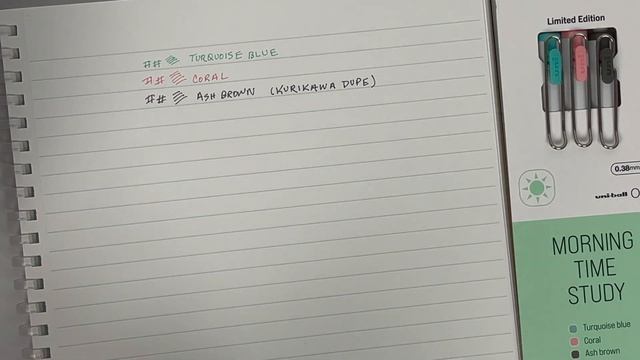 ## TURQUOISE BLUE
## CORAL
## ASH BROWN (KURIKAWA DUPE)
Limited Edition
0.38mm
uni-ball O
MORNING
TIME
STUDY
Turquoise blue
Coral
Ash brown